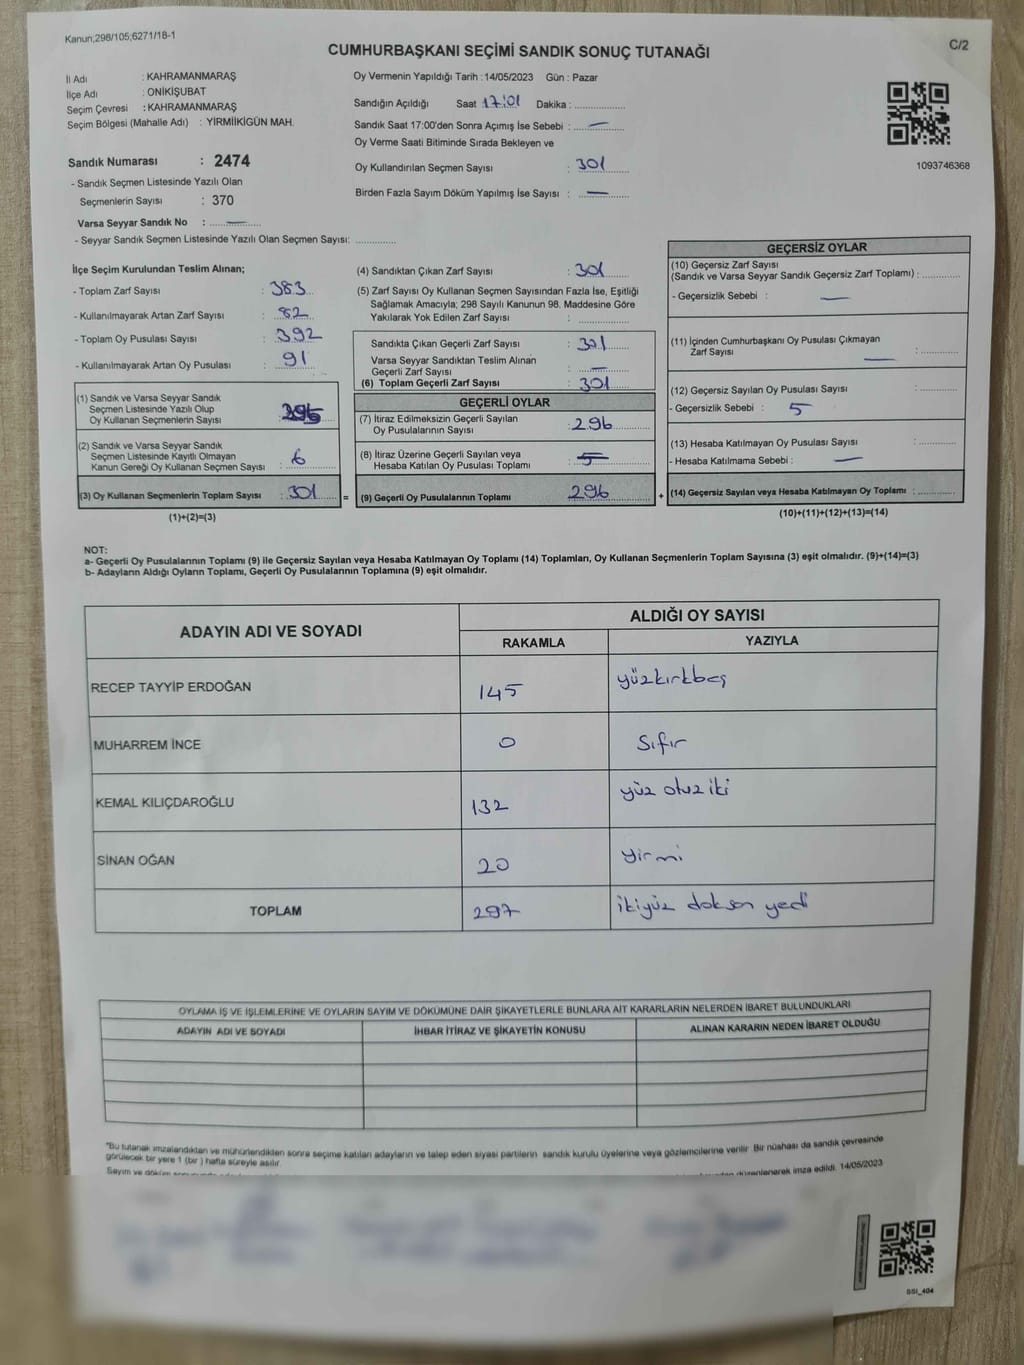 Kanun;298/105;6271/18-1
C/2
CUMHURBAŞKANI SEÇİMİ SANDIK SONUÇ TUTANAĞI
İl Adı : KAHRAMANMARAŞ
İlçe Adı : ONİKİŞUBAT
Seçim Çevresi : KAHRAMANMARAŞ
Seçim Bölgesi (Mahalle Adı) : YİRMİİKİGÜN MAH.
Sandık Numarası : 2474
- Sandık Seçmen Listesinde Yazılı Olan
Seçmenlerin Sayısı : 370
Varsa Seyyar Sandık No : —
- Seyyar Sandık Seçmen Listesinde Yazılı Olan Seçmen Sayısı: ..............
Oy Vermenin Yapıldığı Tarih : 14/05/2023 Gün : Pazar
Sandığın Açıldığı Saat 17:01 Dakika : ..............
Sandık Saat 17:00'den Sonra Açımış İse Sebebi : —
Oy Verme Saati Bitiminde Sırada Bekleyen ve
Oy Kullandırılan Seçmen Sayısı : 301
Birden Fazla Sayım Döküm Yapılmış İse Sayısı : —
1093746368
İlçe Seçim Kurulundan Teslim Alınan;
- Toplam Zarf Sayısı : 383
- Kullanılmayarak Artan Zarf Sayısı : 82
- Toplam Oy Pusulası Sayısı : 392
- Kullanılmayarak Artan Oy Pusulası : 91
(1) Sandık ve Varsa Seyyar Sandık
Seçmen Listesinde Yazılı Olup
Oy Kullanan Seçmenlerin Sayısı :
(2) Sandık ve Varsa Seyyar Sandık
Seçmen Listesinde Kayıtlı Olmayan
Kanun Gereği Oy Kullanan Seçmen Sayısı : 6
(3) Oy Kullanan Seçmenlerin Toplam Sayısı : 301 =
(1)+(2)=(3)
(4) Sandıktan Çıkan Zarf Sayısı : 301
(5) Zarf Sayısı Oy Kullanan Seçmen Sayısından Fazla İse, Eşitliği
Sağlamak Amacıyla; 298 Sayılı Kanunun 98. Maddesine Göre
Yakılarak Yok Edilen Zarf Sayısı : ..............
Sandıkta Çıkan Geçerli Zarf Sayısı : 301
Varsa Seyyar Sandıktan Teslim Alınan
Geçerli Zarf Sayısı : —
(6) Toplam Geçerli Zarf Sayısı : 301
GEÇERLİ OYLAR
(7) İtiraz Edilmeksizin Geçerli Sayılan
Oy Pusulalarının Sayısı : 296
(8) İtiraz Üzerine Geçerli Sayılan veya
Hesaba Katılan Oy Pusulası Toplamı : 5
(9) Geçerli Oy Pusulalarının Toplamı 296 +
GEÇERSİZ OYLAR
(10) Geçersiz Zarf Sayısı
(Sandık ve Varsa Seyyar Sandık Geçersiz Zarf Toplamı) : ..............
- Geçersizlik Sebebi : —
(11) İçinden Cumhurbaşkanı Oy Pusulası Çıkmayan
Zarf Sayısı — : ..............
(12) Geçersiz Sayılan Oy Pusulası Sayısı : ..............
- Geçersizlik Sebebi : 5
(13) Hesaba Katılmayan Oy Pusulası Sayısı : ..............
- Hesaba Katılmama Sebebi : —
(14) Geçersiz Sayılan veya Hesaba Katılmayan Oy Toplamı : ..............
(10)+(11)+(12)+(13)=(14)
NOT:
a- Geçerli Oy Pusulalarının Toplamı (9) ile Geçersiz Sayılan veya Hesaba Katılmayan Oy Toplamı (14) Toplamları, Oy Kullanan Seçmenlerin Toplam Sayısına (3) eşit olmalıdır. (9)+(14)=(3)
b- Adayların Aldığı Oyların Toplamı, Geçerli Oy Pusulalarının Toplamına (9) eşit olmalıdır.
ADAYIN ADI VE SOYADI ALDIĞI OY SAYISI
RAKAMLA YAZIYLA
RECEP TAYYİP ERDOĞAN 145 yüzkırkbeş
MUHARREM İNCE 0 Sıfır
KEMAL KILIÇDAROĞLU 132 yüz otuz iki
SİNAN OĞAN 20 yirmi
TOPLAM 297 ikiyüz doksan yedi
OYLAMA İŞ VE İŞLEMLERİNE VE OYLARIN SAYIM VE DÖKÜMÜNE DAİR ŞİKAYETLERLE BUNLARA AİT KARARLARIN NELERDEN İBARET BULUNDUKLARI
ADAYIN ADI VE SOYADI İHBAR İTİRAZ VE ŞİKAYETİN KONUSU ALINAN KARARIN NEDEN İBARET OLDUĞU
*Bu tutanak imzalandıktan ve mühürlendikten sonra seçime katılan adayların ve talep eden siyasi partilerin sandık kurulu üyelerine veya gözlemcilerine verilir. Bir nüshası da sandık çevresinde
görülecek bir yere 1 (bir) hafta süreyle asılır.
Sayım ve döküm düzenlenerek imza edildi. 14/05/2023
SSI_404